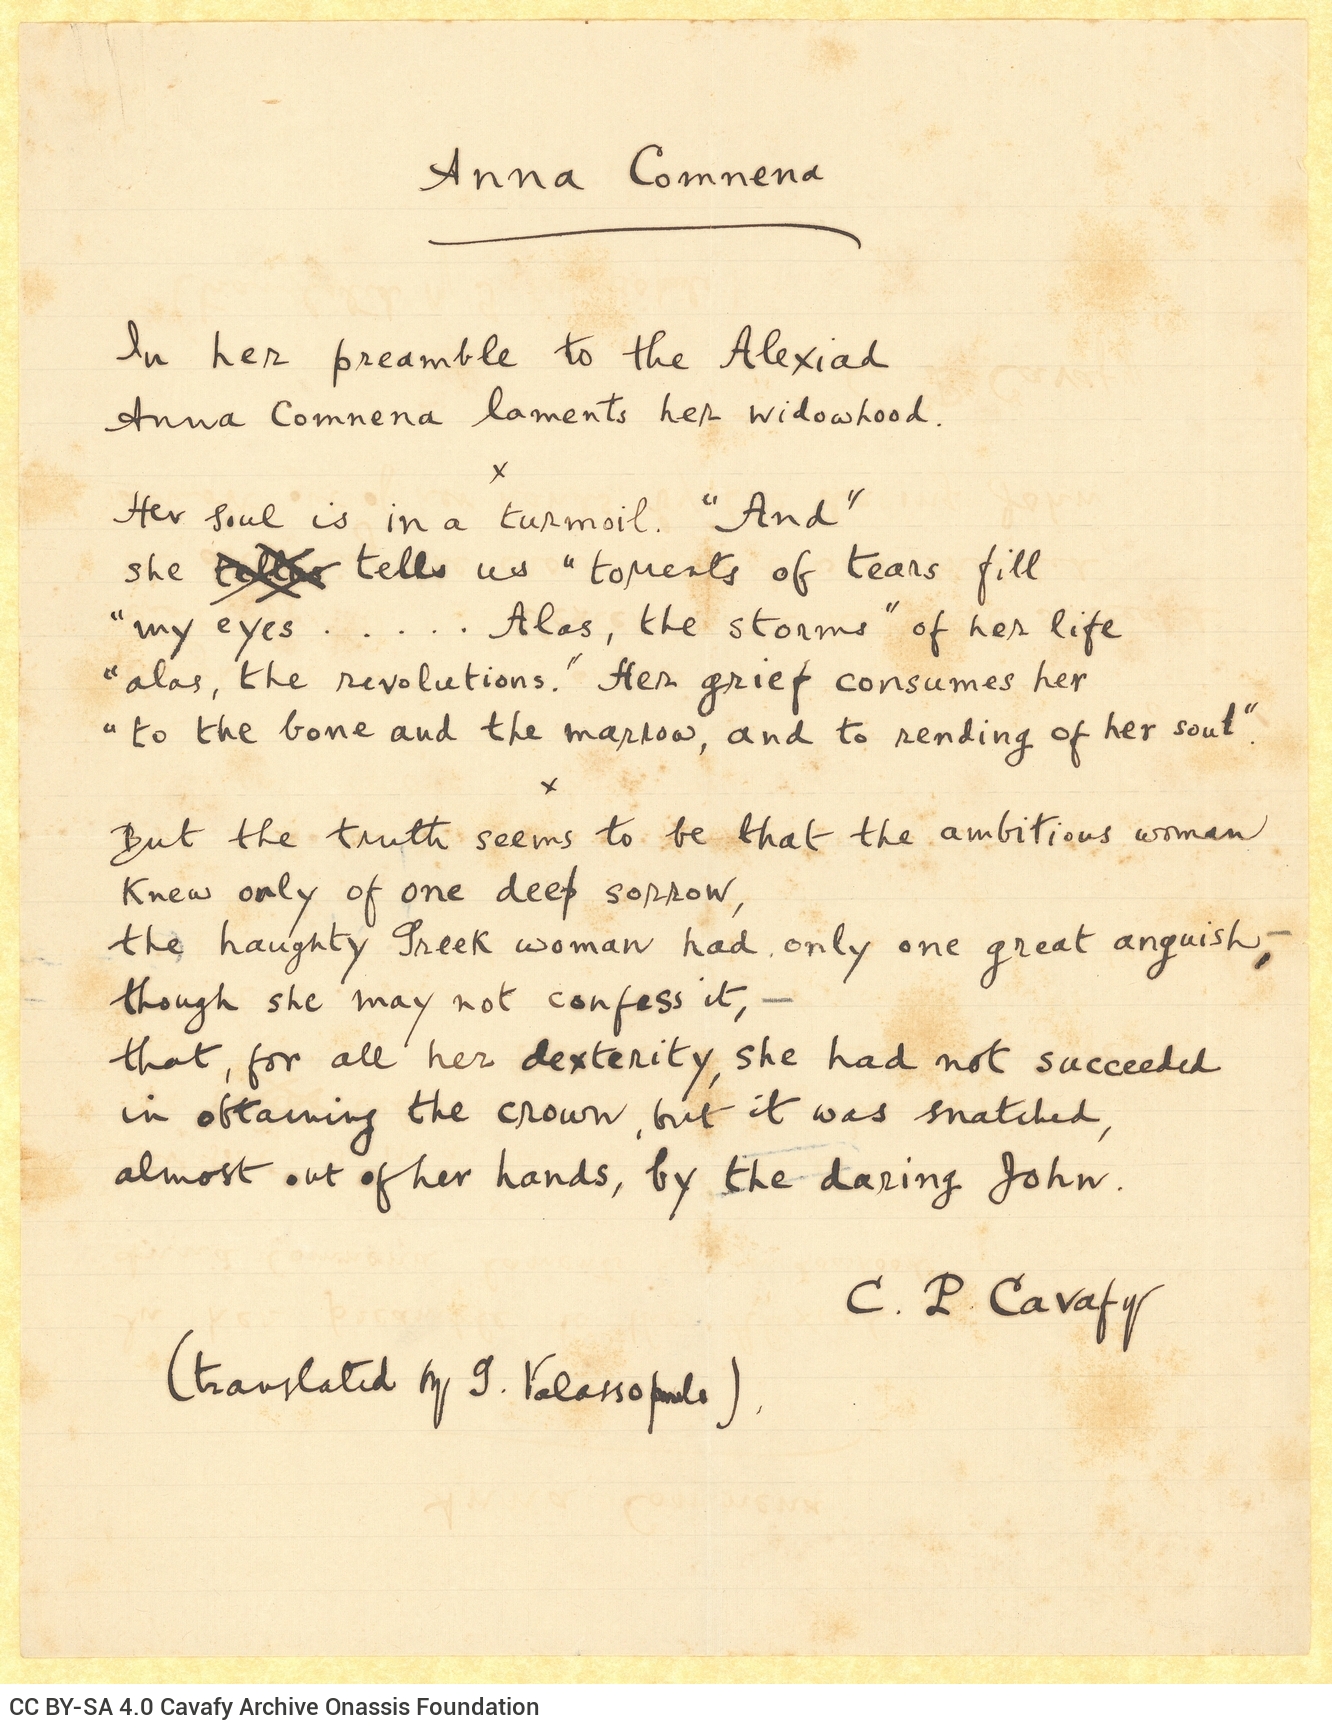 Anna Comnena
In her preamble to the Alexiad
Anna Comnena laments her widowhood.
x
Her soul is in a turmoil. "And"
she tells us "torrents of tears fill
"my eyes . . . . . Alas, the storms" of her life
"alas, the revolutions." Her grief consumes her
"to the bone and the marrow, and to rending of her soul".
x
But the truth seems to be that the ambitious woman
Knew only of one deep sorrow,
the haughty Greek woman had only one great anguish,—
though she may not confess it,—
that, for all her dexterity, she had not succeeded
in obtaining the crown, but it was snatched,
almost out of her hands, by the daring John.
C. P. Cavafy
(translated by G. Valassopoulo).
CC BY-SA 4.0 Cavafy Archive Onassis Foundation